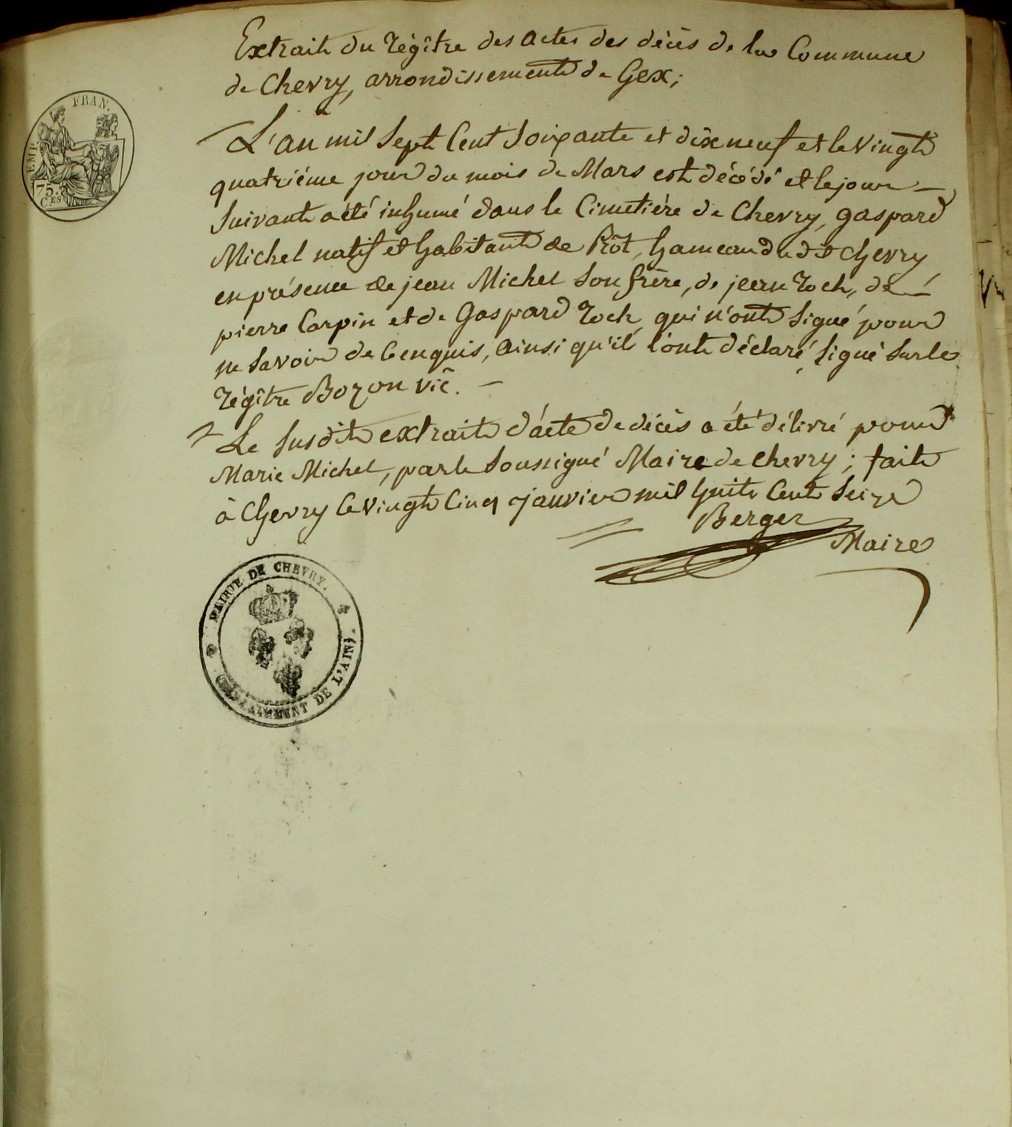 EMP. FRAN.
75.
Extrait du régître des actes des décès de la Commune
de Chevry, arrondissement de Gex;
L'an mil Sept Cent Soixante et dix neuf et le Vingt
quatrième jour du mois de Mars est décédé et le jour
Suivant a été inhumé dans le Cimetière de Chevry, gaspard
Michel natif et habitant de hameau dudt Chevry
en présence de jean Michel Son frère, de jean roch, de
pierre Carpin et de Gaspard roch qui n'ont Signé pour
ne Savoir de Cenquis, ainsi qu'il l'ont déclaré, Signé Sur le
régître Bozon vic.
Le Susdit extrait d'acte de décès a été délivré pour
Marie Michel, par le Soussigné Maire de chevry; fait
à Chevry le Vingt Cinq janvier mil huit Cent Seize
Berger
Maire
MAIRIE DE CHEVRY.
DE L'AIN